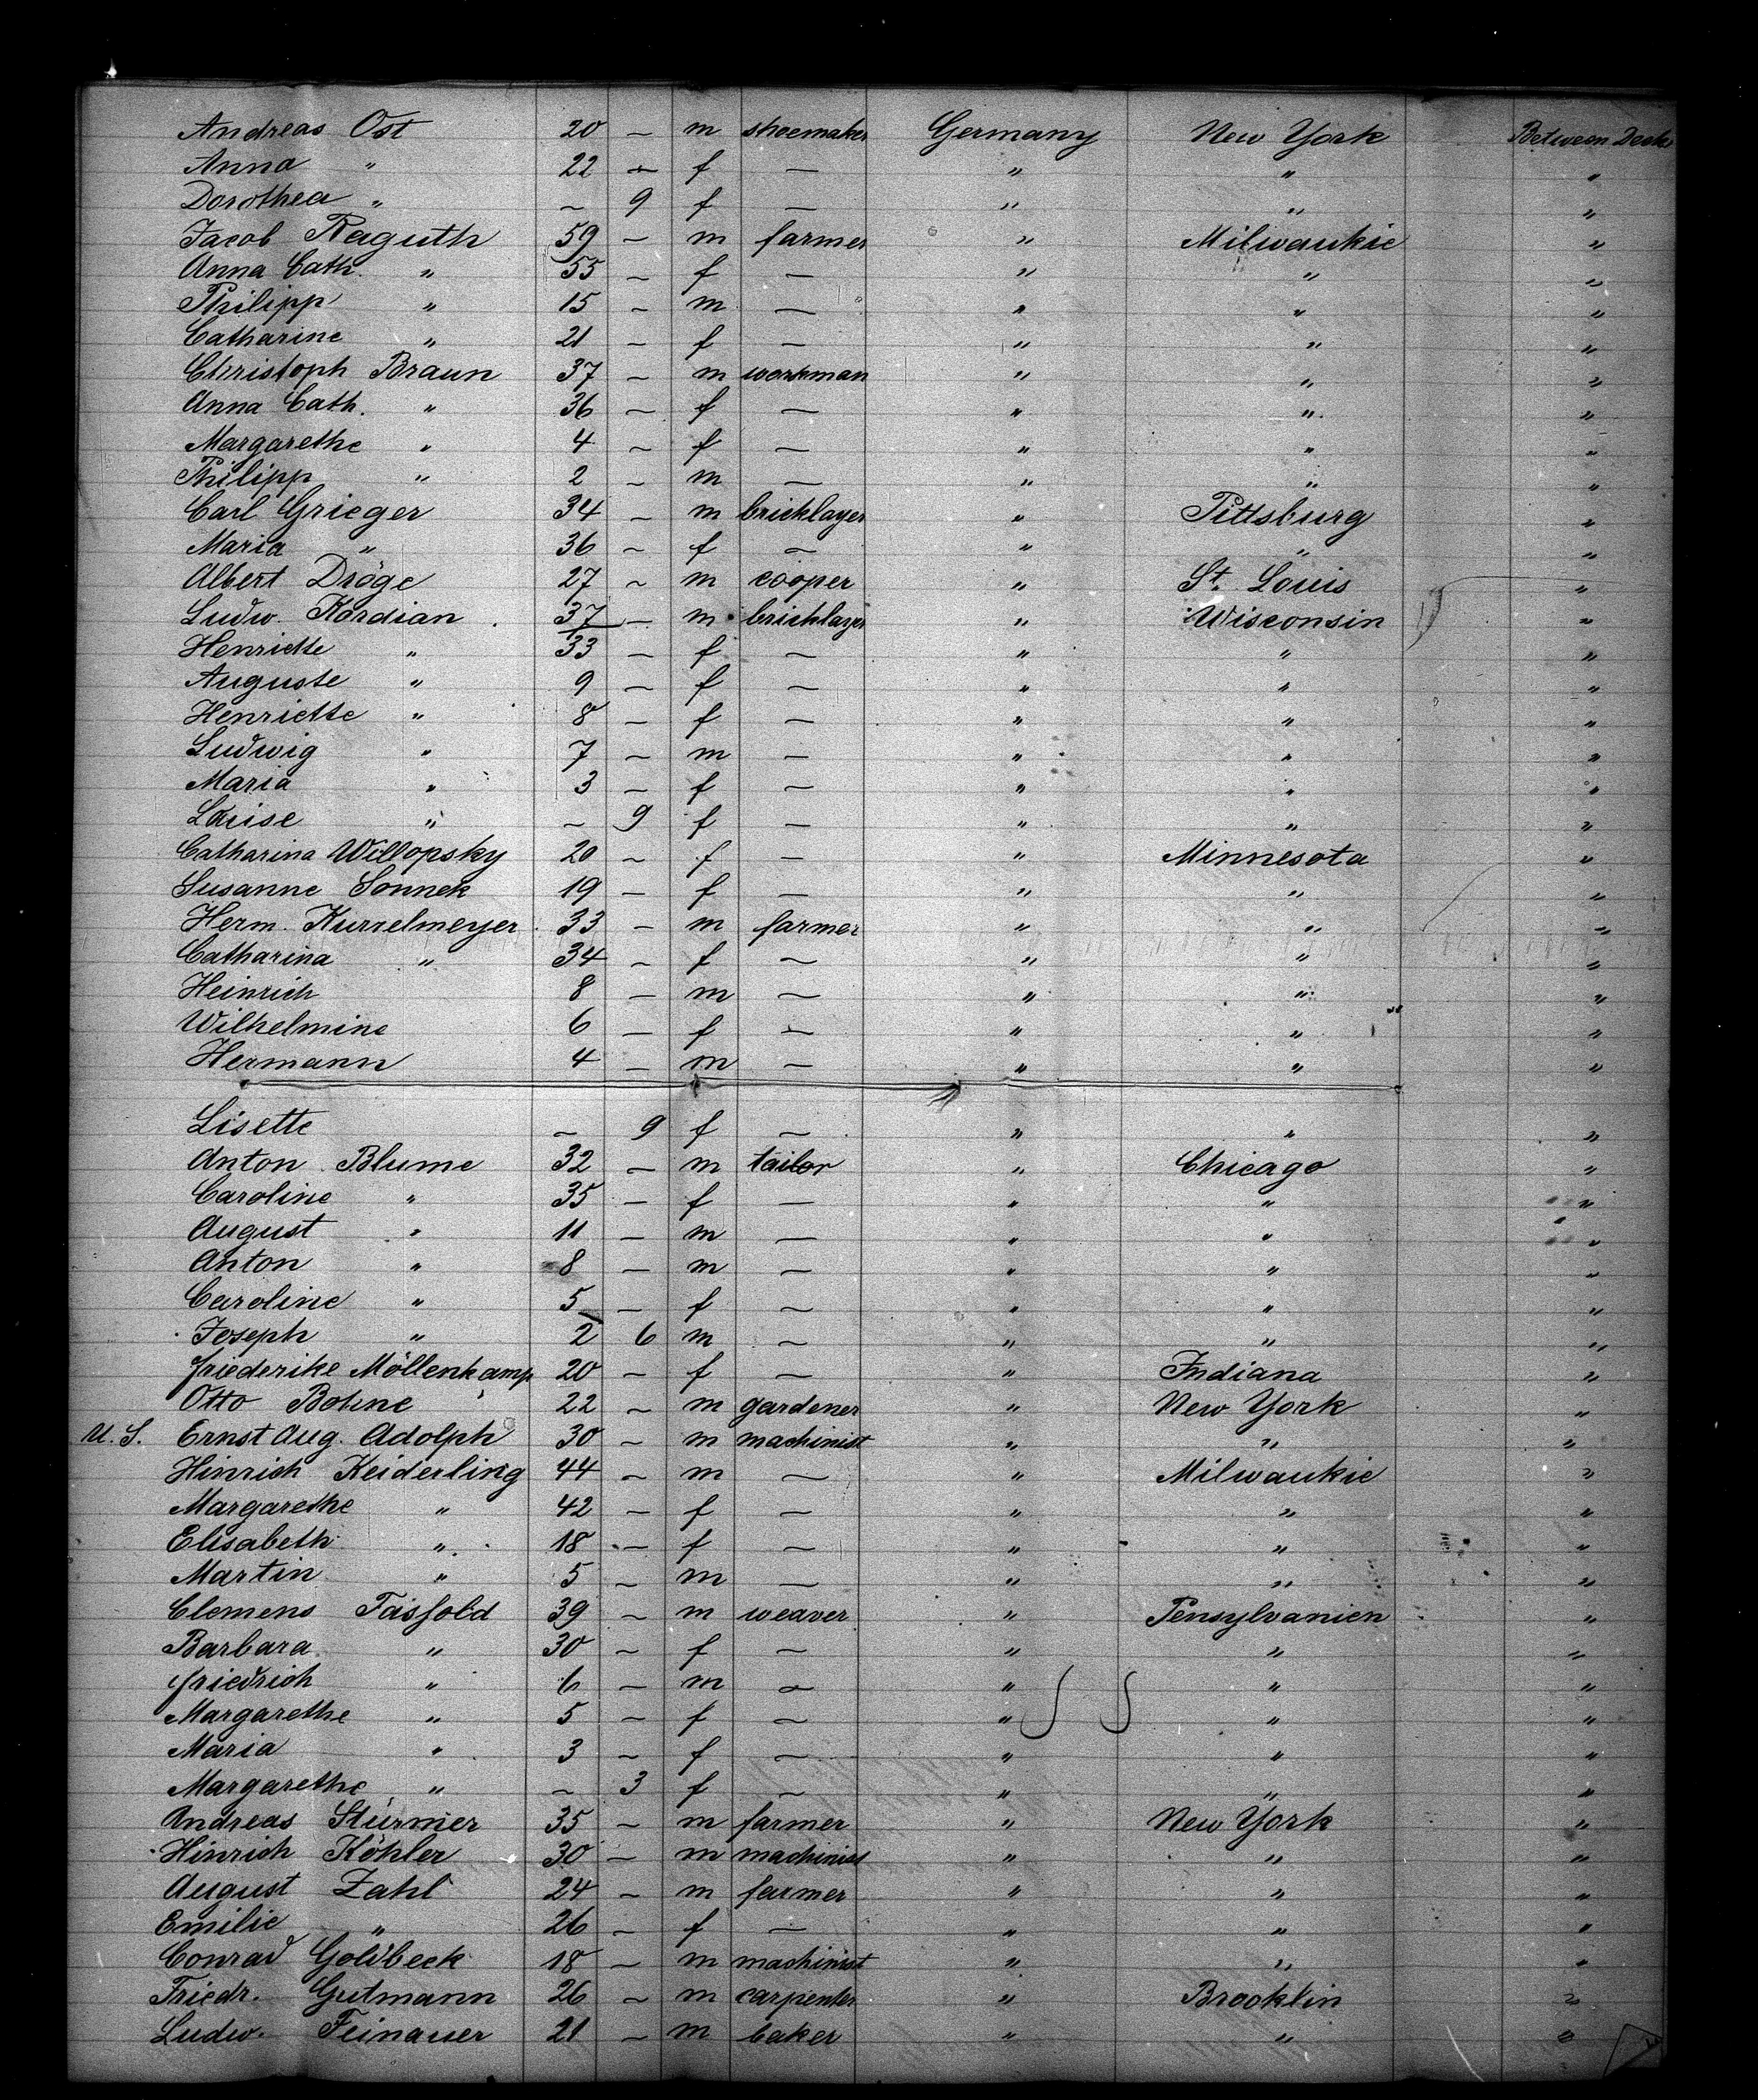 Andreas Ost 20 – m shoemaker Germany New York Between Deck
Anna " 22 – f – " " "
Dorothea " – 9 f – " " "
Jacob Raguth 59 – m farmer " Milwaukie "
Anna Cath. " 55 – f – " " "
Philipp " 15 – m – " " "
Catharine " 21 – f – " " "
Christoph Braun 37 – m workman " " "
Anna Cath. " 36 – f – " " "
Margarethe " 4 – f – " " "
Philipp " 2 – m – " " "
Carl Grieger 34 – m bricklayer " Pittsburg "
Maria " 36 – f – " " "
Albert Dröge 27 – m cooper " St. Louis "
Ludw. Kordian 37 – m bricklayer " Wisconsin "
Henriette " 33 – f – " " "
Auguste " 9 – f – " " "
Henriette " 8 – f – " " "
Ludwig " 7 – m – " " "
Maria " 3 – f – " " "
Louise " – 9 f – " " "
Catharina Willopsky 20 – f – " Minnesota "
Susanne Sonnek 19 – f – " " "
Herm. Kurrelmeyer 33 – m farmer " " "
Catharina " 34 – f – " " "
Heinrich 8 – m – " " "
Wilhelmine 6 – f – " " "
Hermann 4 – m – " " "
Lisette – 9 f – " " "
Anton Blume 32 – m tailor " Chicago "
Caroline " 35 – f – " " "
August " 11 – m – " " "
Anton " 8 – m – " " "
Caroline " 5 – f – " " "
Joseph " 2 6 m – " " "
Friederike Möllenkamp 20 – f – " Indiana "
Otto Bohne 22 – m gardener " New York "
U. S. Ernst Aug. Adolph 30 – m machinist " " "
Hinrich Keiderling 44 – m – " Milwaukie "
Margarethe " 42 – f – " " "
Elisabeth " 18 – f – " " "
Martin " 5 – m – " " "
Clemens Tasfold 39 – m weaver " Pensylvanien "
Barbara " 30 – f – " " "
Friedrich " 6 – m – " " "
Margarethe " 5 – f – " " "
Maria " 3 – f – " " "
Margarethe " – 3 f – " " "
Andreas Stürmer 35 – m farmer " New York "
Hinrich Köhler 30 – m machinist " " "
August Zahl 24 – m farmer " " "
Emilie " 26 – f – " " "
Conrad Goldbeck 18 – m machinist " " "
Friedr. Gutmann 26 – m carpenter " Brooklin "
Ludw. Feinauer 21 – m baker " " "